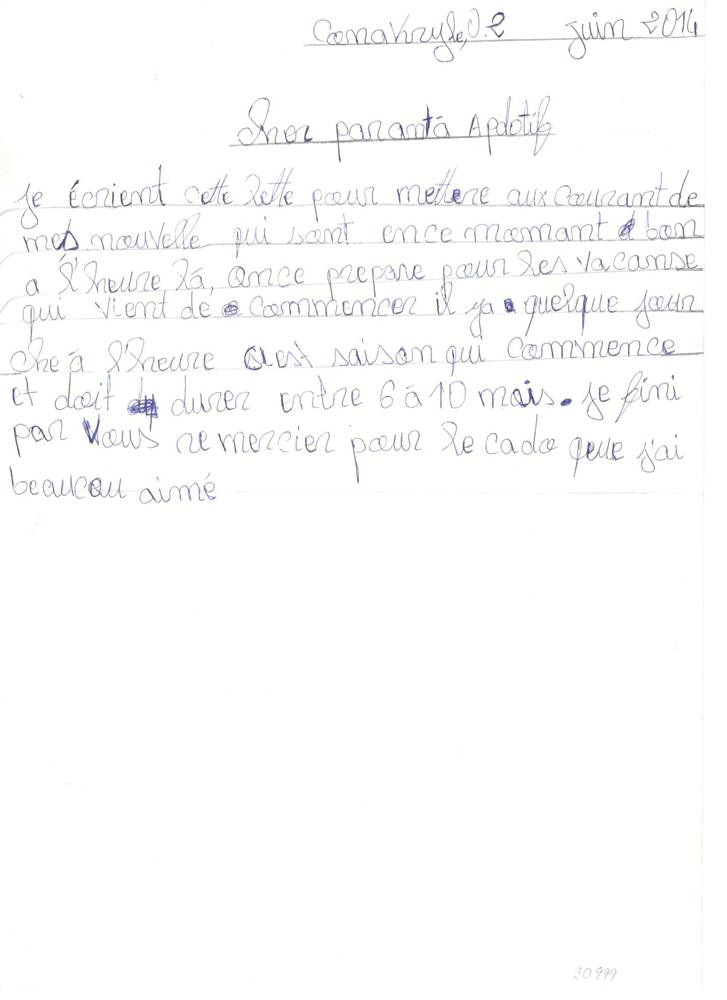 Conakry le, 0.2 juin 2014
Cher paranta Apdotif
Je écrient cette lette pour mettere aux courant de
mes nouvelle qui sont ence momant bon
a l'heure la, once prepare pour les vacanse
qui vient de commencer il ya quelque jour
che à l'heure c'est saison qui commence
et doit durer entre 6 à 10 mois. je fini
par vous remercier pour le cado que j'ai
beaucou aimé
30999